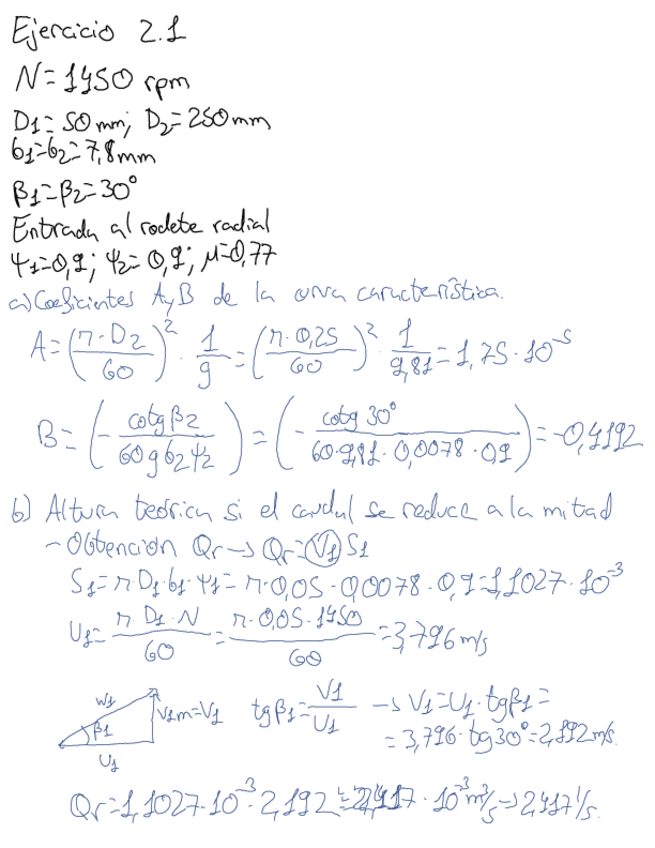 Ejercicio 2.1
N=1450 rpm
D1=50mm; D2=250mm
b1=b2=7,8mm
β1=β2=30°
Entrada al rodete radial
ψ1=0,9; ψ2=0,9; μ=0,77
a) Coeficientes A y B de la curva característica.
A=(π·D2/60)²·1/g=(π·0,25/60)²·1/9,81=1,75·10⁻⁵
B=(-cotg β2/60 g b2 ψ2)=(-cotg 30°/60·9,81·0,0078·0,9)=-0,4192
b) Altura teórica si el caudal se reduce a la mitad
- Obtención Qr → Qr=V1 S1
S1=π·D1·b1·ψ1=π·0,05·0,0078·0,9=1,1027·10⁻³
U1=π·D1·N/60=π·0,05·1450/60=3,796m/s
w1
β1
U1
V1m=V1
tgβ1=V1/U1 → V1=U1·tgβ1=
=3,796·tg30°=2,192m/s.
Qr=1,1027·10⁻³·2,192=2,417·10⁻³m³/s→2,417 l/s.